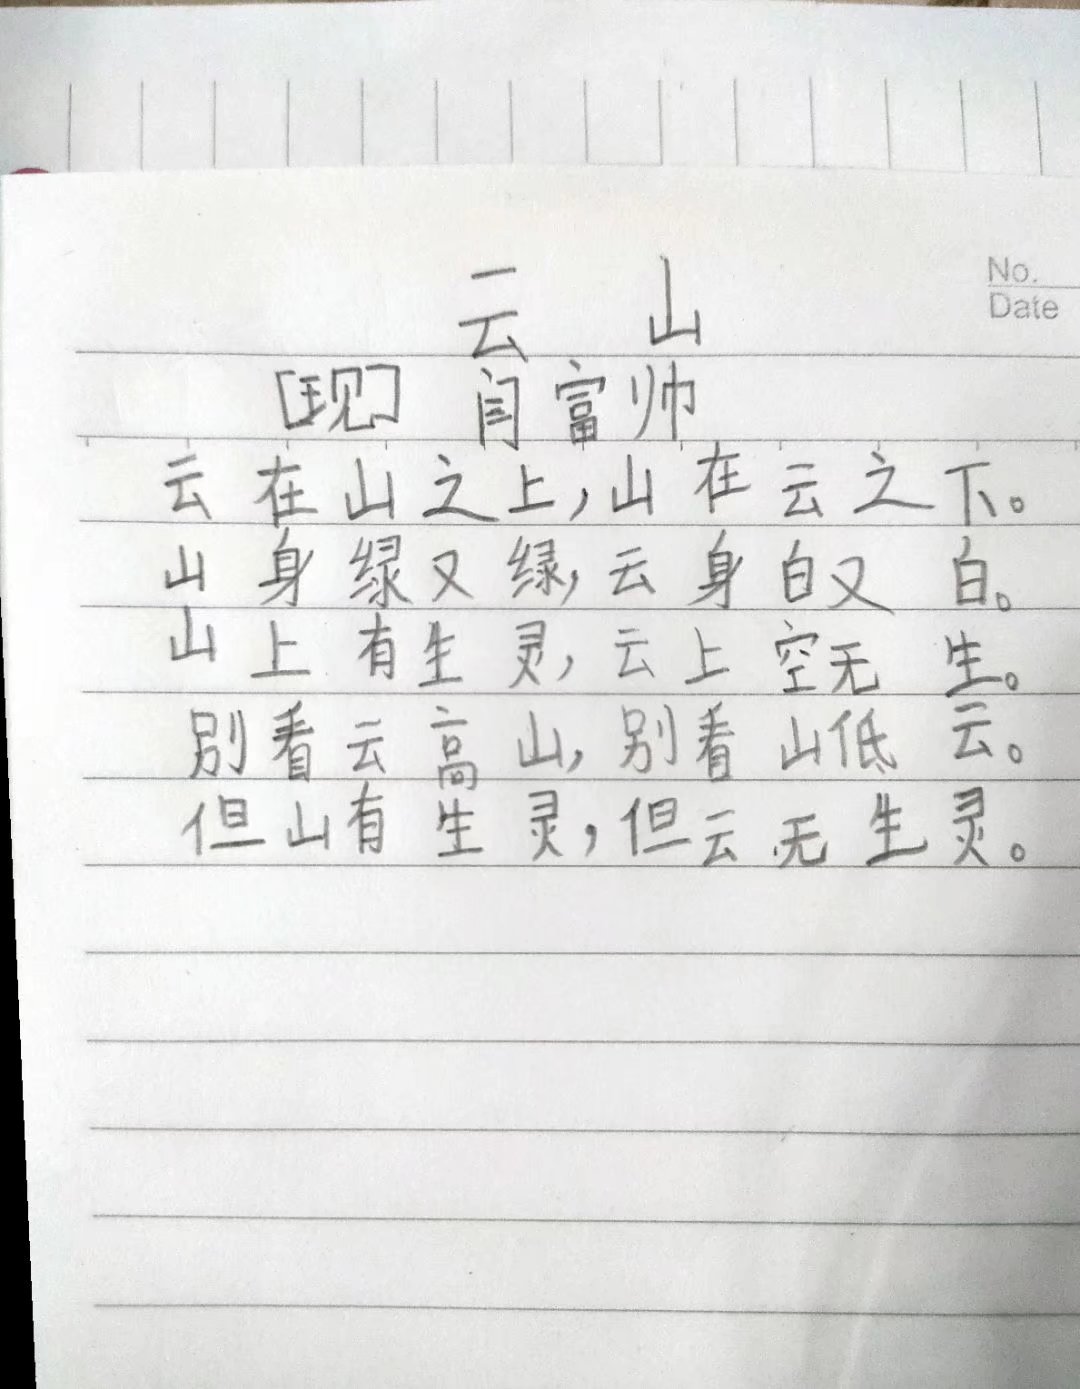 No.
Date
云 山
[现] 闫富帅
云在山之上,山在云之下。
山身绿又绿,云身白又白。
山上有生灵,云上空无生。
别看云高山,别看山低云。
但山有生灵,但云无生灵。